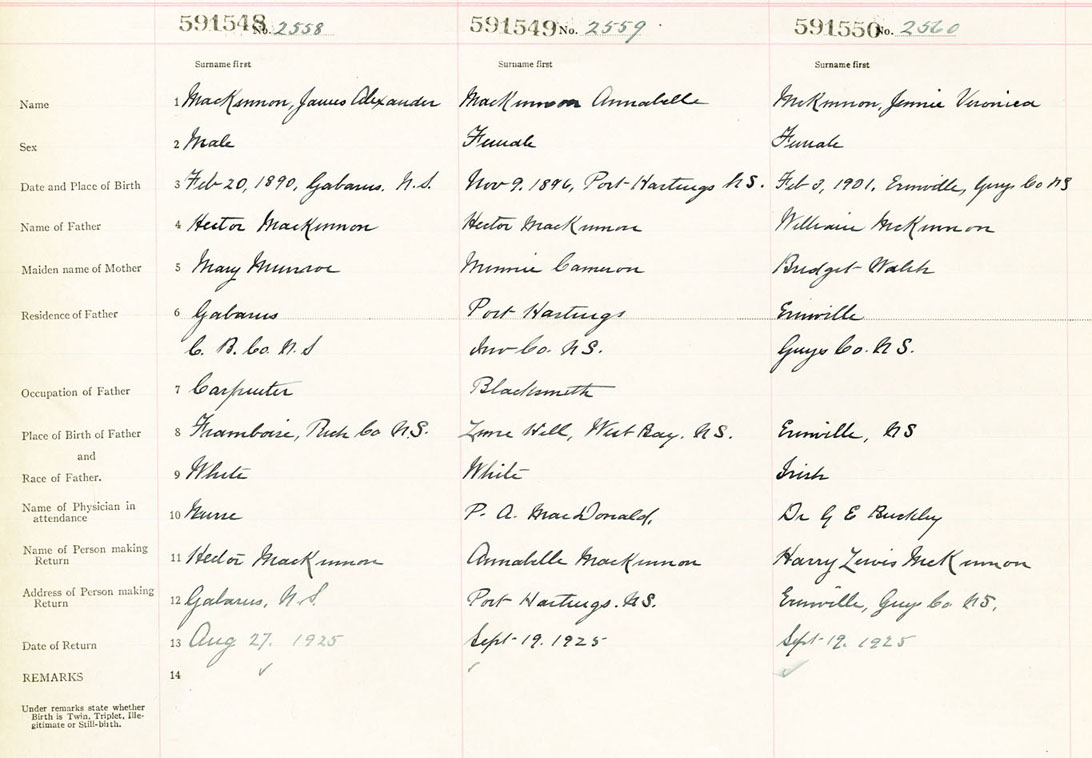 591548 No. 2558 591549 No. 2559 591550 No. 2560
Surname first Surname first Surname first
Name 1 MacKinnon, James Alexander MacKinnon Annabelle McKinnon, Jennie Veronica
Sex 2 Male Female Female
Date and Place of Birth 3 Feb 20, 1890, Gabarus. N.S. Nov 9. 1896, Port Hastings N.S. Feb 3, 1901. Erinville, Guys Co NS
Name of Father 4 Hector MacKinnon Hector MacKinnon William McKinnon
Maiden name of Mother 5 Mary Munroe Minnie Cameron Bridget Walsh
Residence of Father 6 Gabarus Port Hastings Erinville
C. B. Co. N.S Inv Co. N.S. Guys Co. N.S.
Occupation of Father 7 Carpenter Blacksmith
Place of Birth of Father 8 Framboise, Rich Co N.S. Lime Hill, West Bay. N.S. Erinville, NS
and
Race of Father. 9 White White Irish
Name of Physician in
attendance 10 Nurse P. A. MacDonald, Dr G E Buckley
Name of Person making
Return 11 Hector MacKinnon Annabelle MacKinnon Harry Lewis McKinnon
Address of Person making
Return 12 Gabarus, N.S. Port Hastings. N.S. Erinville, Guys Co N.S,
Date of Return 13 Aug 27. 1925 Sept 19. 1925 Sept 19. 1925
REMARKS 14
Under remarks state whether
Birth is Twin, Triplet, Ille-
gitimate or Still-birth.